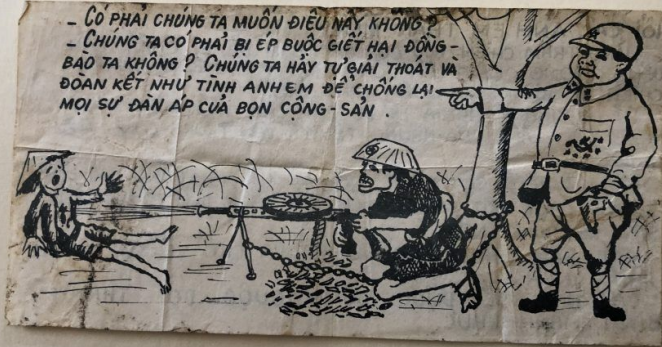 - CÓ PHẢI CHÚNG TA MUỐN ĐIỀU NÀY KHÔNG ?
- CHÚNG TA CÓ PHẢI BỊ ÉP BUỘC GIẾT HẠI ĐỒNG-
BÀO TA KHÔNG ? CHÚNG TA HÃY TỰ GIẢI THOÁT VÀ
ĐOÀN KẾT NHƯ TÌNH ANH EM ĐỂ CHỐNG LẠI
MỌI SỰ ĐÀN ÁP CỦA BỌN CỘNG-SẢN .